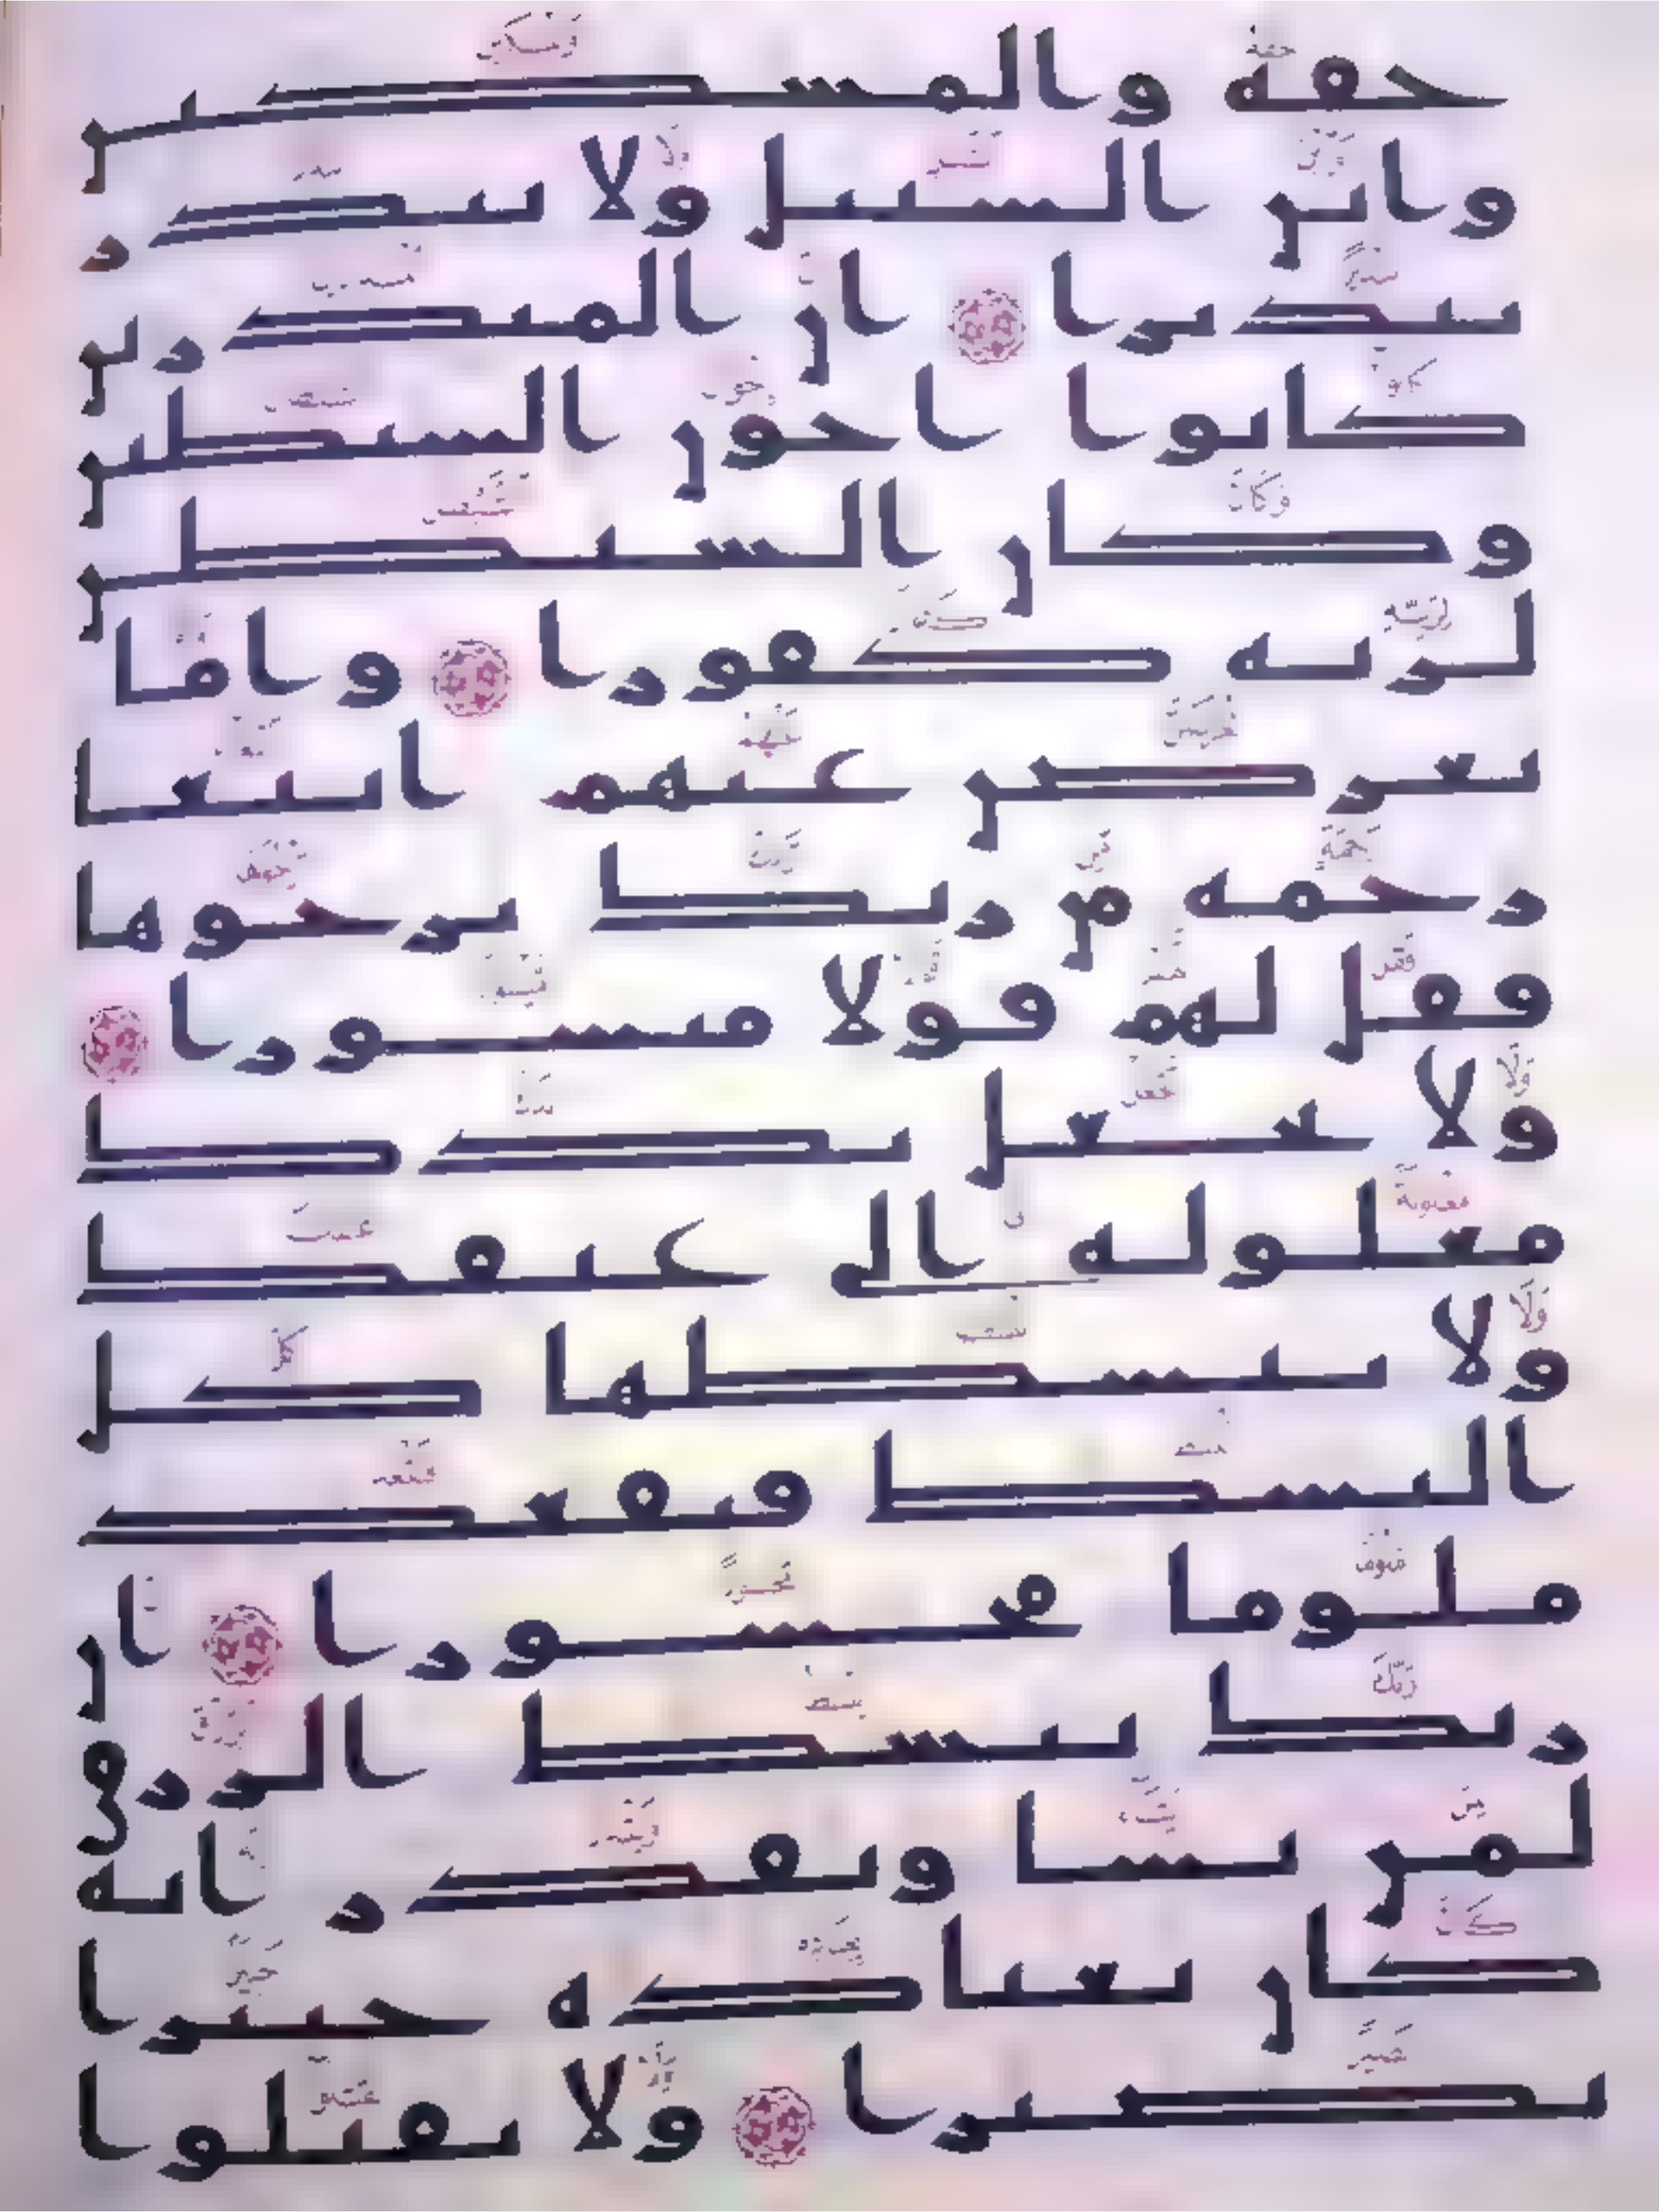 حقه والمسكين
وابن السبيل ولا تبذر
تبذيرا ان المبذرين
كانوا اخون الشيطين
وكان الشيطن
لربه كفورا واما
تعرضن عنهم ابتغا
رحمه من ربك ترجوها
فقل لهم قولا ميسورا
ولا تجعل يدك
مغلوله الى عنقك
ولا تبسطها كل
البسط فتقعد
ملوما محسورا ان
ربك يبسط الرزق
لمن يشا ويقدر انه
كان بعباده خبيرا
بصيرا ولا تقتلوا